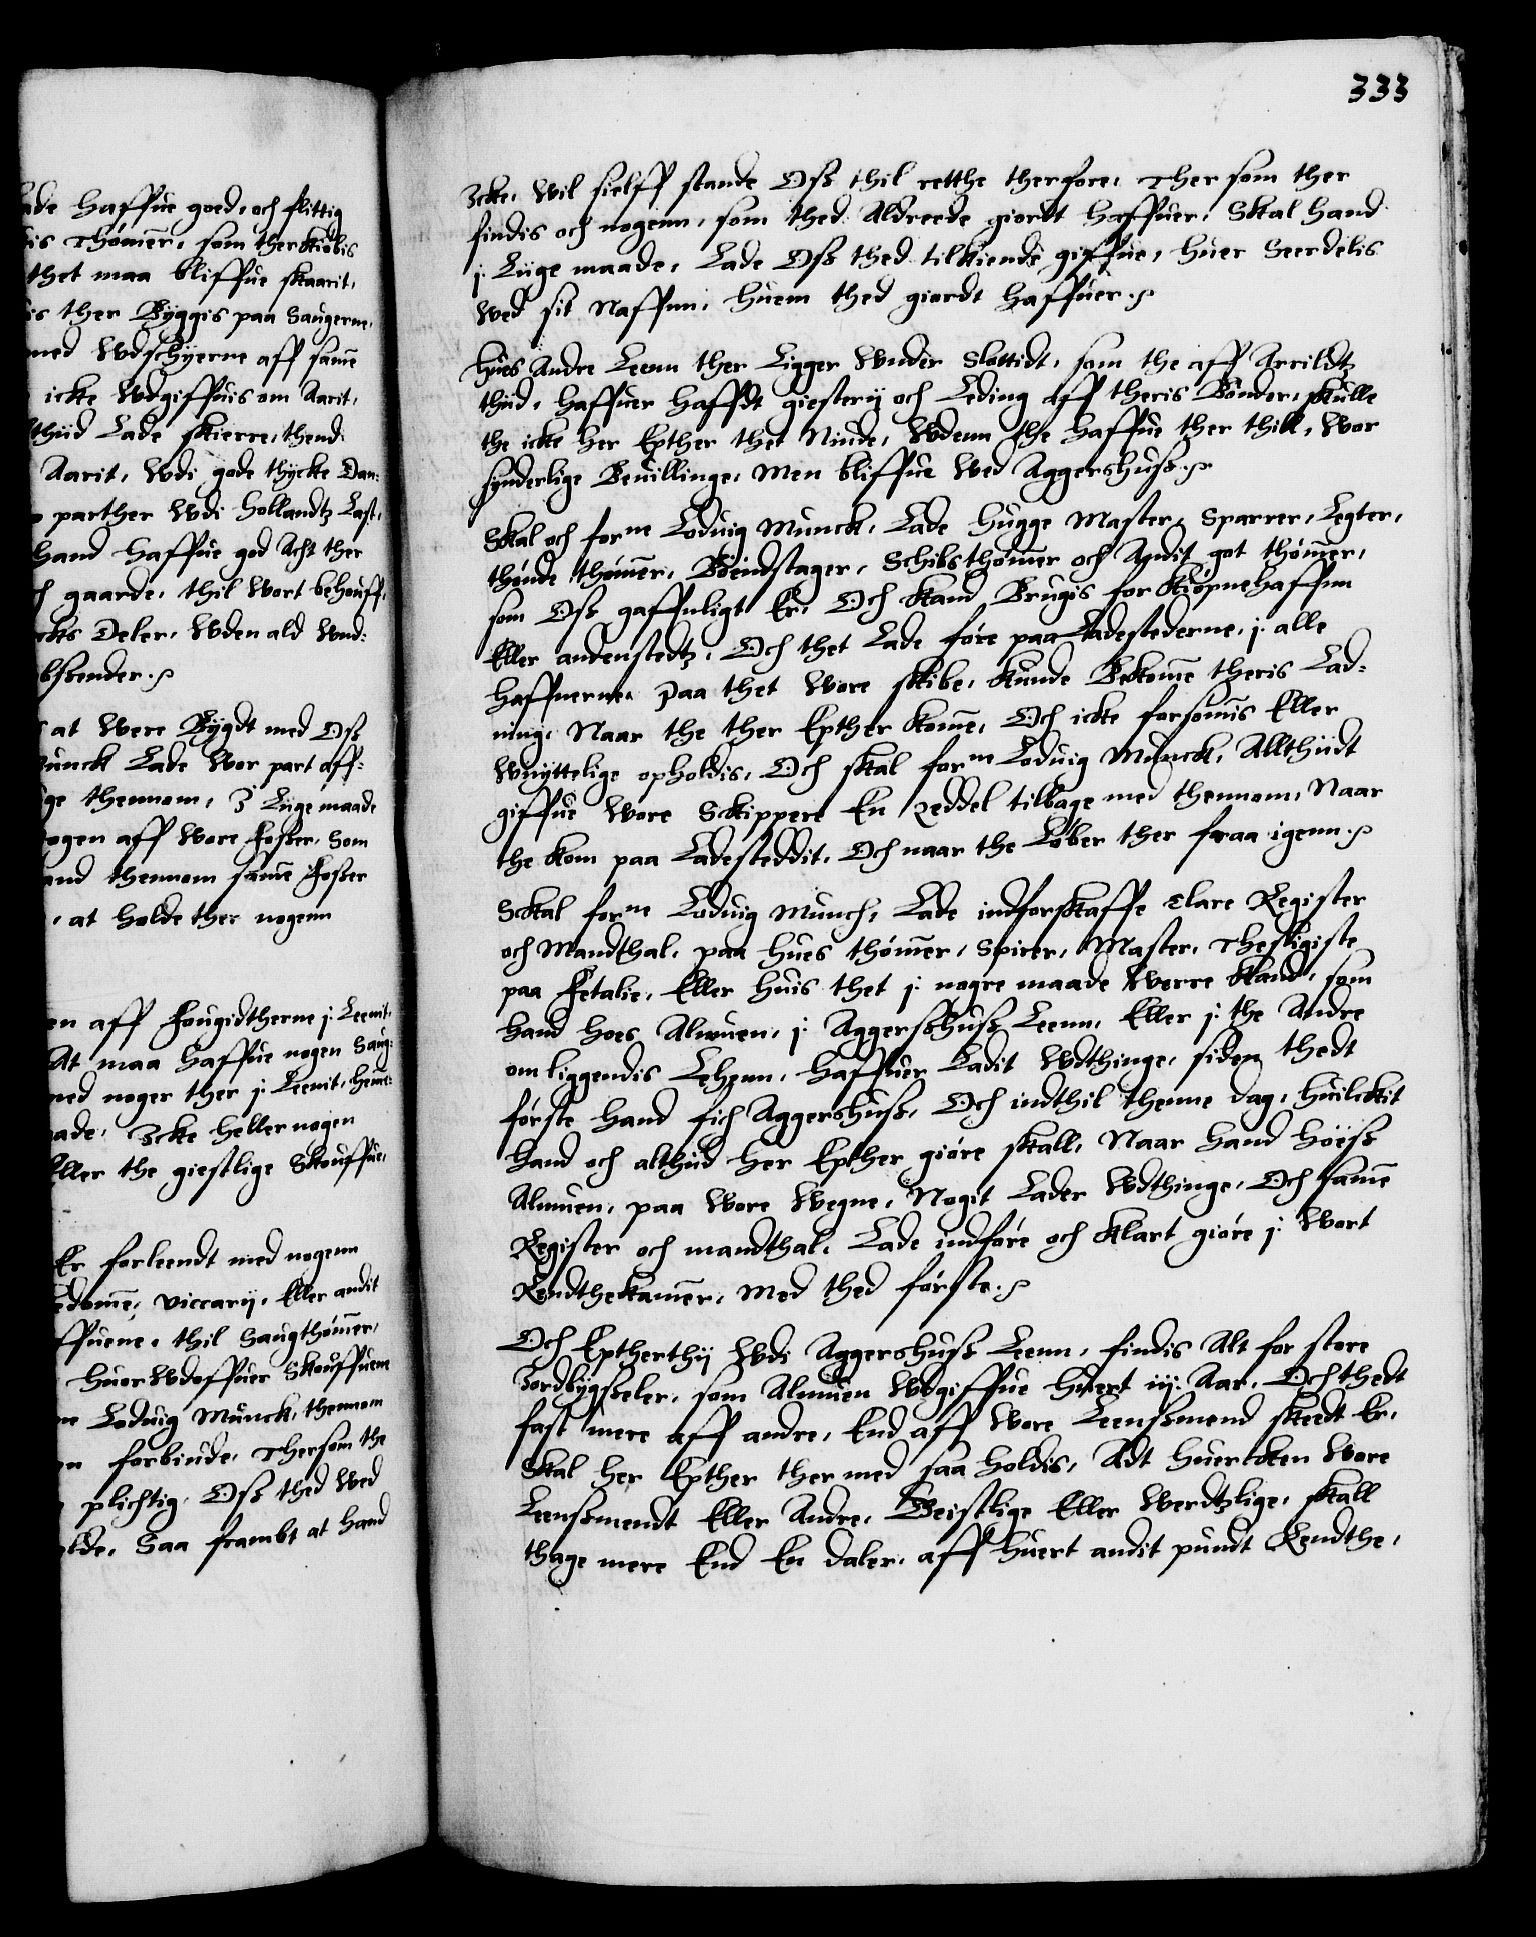 ade haffue goed, och flittig
is Thømer, som ther kiøbis
thet maa bliffue skaarit,
is ther Byggis paa Saugerne,
med Wdschÿerne aff same
ickе Wdgiffuis om Aarit,
thiid Lade skierre, thend
Aarit, Wdi gode thÿcke Dan-
parther Wdi Hollandtz Last,
hand haffue god Acht ther
gaarde, thil Wort behouff,
Deler, Wden ald Wnd-
at Were Bÿgdt med Oss
Munck Lade Wor part aff-
ge thennom, I Liige maade
ogen aff Wore Fosser, Som
and thennom same Fosser
, at holde ther nogenn
en aff Fougidtherne j Leenit,
At maa haffue nogen Saug-
med noger ther j Leenit,
ade, Icke heller nogen
Eller the giestlige Skouffue,
Er forleendt med nogenn
viccarij, Eller andit
ffuene, thil Saugthømer,
huor Wdoffuer Skouffuene
Lodwig Munck, thennom
forbiude, Thersom the
plichtig, Oss thed Wed
lde, Saa frambt at hand
333
Icke, Wil sielff stande Oss thil retthe therfore, Ther som ther
findis och nogenn, som thed Aldreede giordt haffuer, Skal hand
j Liige maade, Lade Oss thed tilkiende giffue, huer Seerdelis
Wed sit Naffnn, huem thed giordt haffuer.
Hues Andre Leenn ther Ligger Wnder Slottidt, som the aff Arrildtz
thiid, haffuer haffdt giesterÿ och Leding aff theris Bønder, skulle
the icke her Epther thet Niude, Wdenn the haffue ther thill, Wor
sÿnderlige Beuillinge, Men bliffue Wed Aggershuss.
Skal och forne Lodwig Munck, Lade hugge Master, Sparrer, Legter,
thønde thømer, Boendstager, Schibsthømer och Andit got thømer,
som Oss gaffnligt Er, Och kand Brugis for Kiøpnehaffnn
Eller andenstedtz, Och thet Lade føre paa Ladestederne, j alle
haffnerne, Paa thet Wore skibe, kunde Bekome theris Lad-
ning, Naar the ther Epther kome, Och icke forsomis Eller
Wnÿttelige opholdis, Och skal forne Lodwig Munck, Allthiidt
giffue Wore Skippere En Zeddel tilbage med thennom, Naar
the kom paa Ladesteddit, Och naar the Løber ther fraa igenn.
Skal forne Lodwig Munck, Lade indforskaffe Clare Register
och Mandthal, paa hues thømer, Spirer, Master, Thesligiste
paa Fetalie, Eller huis thet j nogre maade Werre kand, som
hand hoes Almuen, j Aggershuss Leenn, Eller j the Andre
omliggendis Lehenn, haffuer Ladit Wdthinge, siden thedt
første hand fich Aggershuss, Och indthil thenne dag, huilckit
hand och althiid her Epther giøre skall, Naar hand hoess
Almuen, paa Wore Wegne, Nogit Lader Wdthinge, Och same
Register och mandthal, Lade indføre och klart giøre j Wort
Rendthekamer, Med thed første.
Och Eptherthij Wdi Aggershuss Leenn, findis Alt for store
Jordbÿgsseler, som Almuen Wdgiffue huert iij: Aar, Och thedt
fast mere aff andre, End aff Wore Leenssmend skeedt Er,
Skal her Epther ther med saa holdis, Adt huercken Wore
Leenssmendt Eller Andre, Geistlige Eller Werdtzlige, skall
thage mere End En daler, aff huert andit pundt Rendthe,